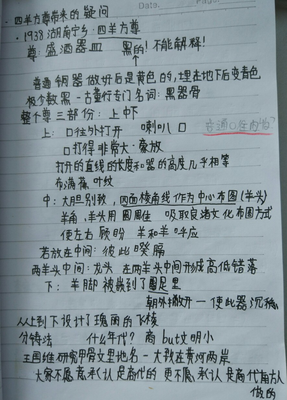 Date.
Page.
· 四羊方尊带来的疑问
· 1938 湖南宁乡·四羊方尊
尊：盛酒器皿 黑的！不能解释！
普通铜器做好后是黄色的，埋在地下后变青色
极少数黑－古董行专门名词：黑器骨
整个尊三部份：上中下
上：口往外打开 喇叭口
口打得非常大·豪放
打开的直线的长度和器的高度几乎相等
布满蕉叶纹
中：大胆别致，四面棱角线作为中心布图（羊头）
羊角，羊头用圆周住 吸取良渚文化布图方式
使左右顾盼 羊和羊呼应
若放在中间：彼此睽隔
两羊头中间：龙头 在两羊头中间形成高低错落
下：羊脚被嵌到了圈足里
朝外撇开－使此器沉稳
从上到下设计了瑰角的飞棱
分铸法 什么年代？商 but文明小
王国维研究甲骨文里地名－大致在黄河两岸
大家不愿意承认是商代的 更不愿承认是商代南方人
做的